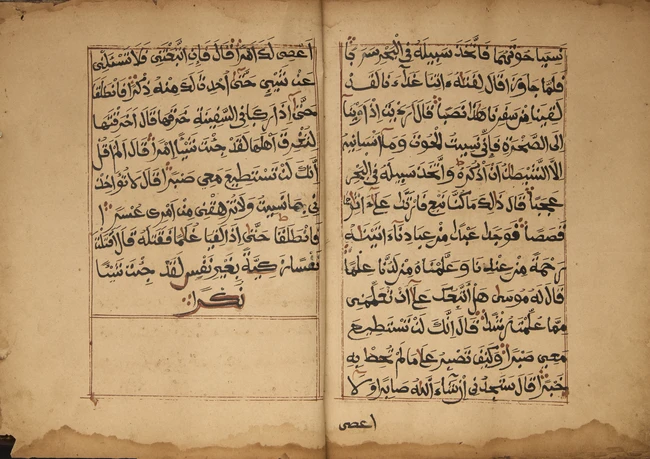 نسيا حوتهما فاتخذ سبيله في البحر سربا
فلما جاوزا قال لفتىه ءاتنا غداءنا لقد
لقينا من سفرنا هذا نصبا قال ارءيت اذ اوينا
الى الصخرة فإني نسيت الحوت وما انسانيه
الا الشيطن أن أذكره واتخذ سبيله في البحر
عجبا قال ذلك ما كنا نبغ فارتدا على ءاثرهما
قصصا فوجدا عبدا من عبادنا ءاتينه
رحمة من عندنا وعلمناه من لدنا علما
قال له موسى هل اتبعك على أن تعلمني
مما علمت رشدا قال إنك لن تستطيع
معي صبرا وكيف تصبر على ما لم تحط به
خبرا قال ستجدني إن شاء الله صابرا ولا
اعصي
اعصي لك امرا قال فإن اتبعتني فلا تسئلني
عن شيء حتى أحدث لك منه ذكرا فانطلقا
حتى إذا ركبا في السفينة خرقها قال اخرقتها
لتغرق أهلها لقد جئت شيئا امرا قال الم اقل
إنك لن تستطيع معي صبرا قال لا تؤاخذ
ني بما نسيت ولا ترهقني من امري عسرا
فانطلقا حتى إذا لقيا غلما فقتله قال اقتلت
نفسا زكية بغير نفس لقد جئت شيئا
نكرا